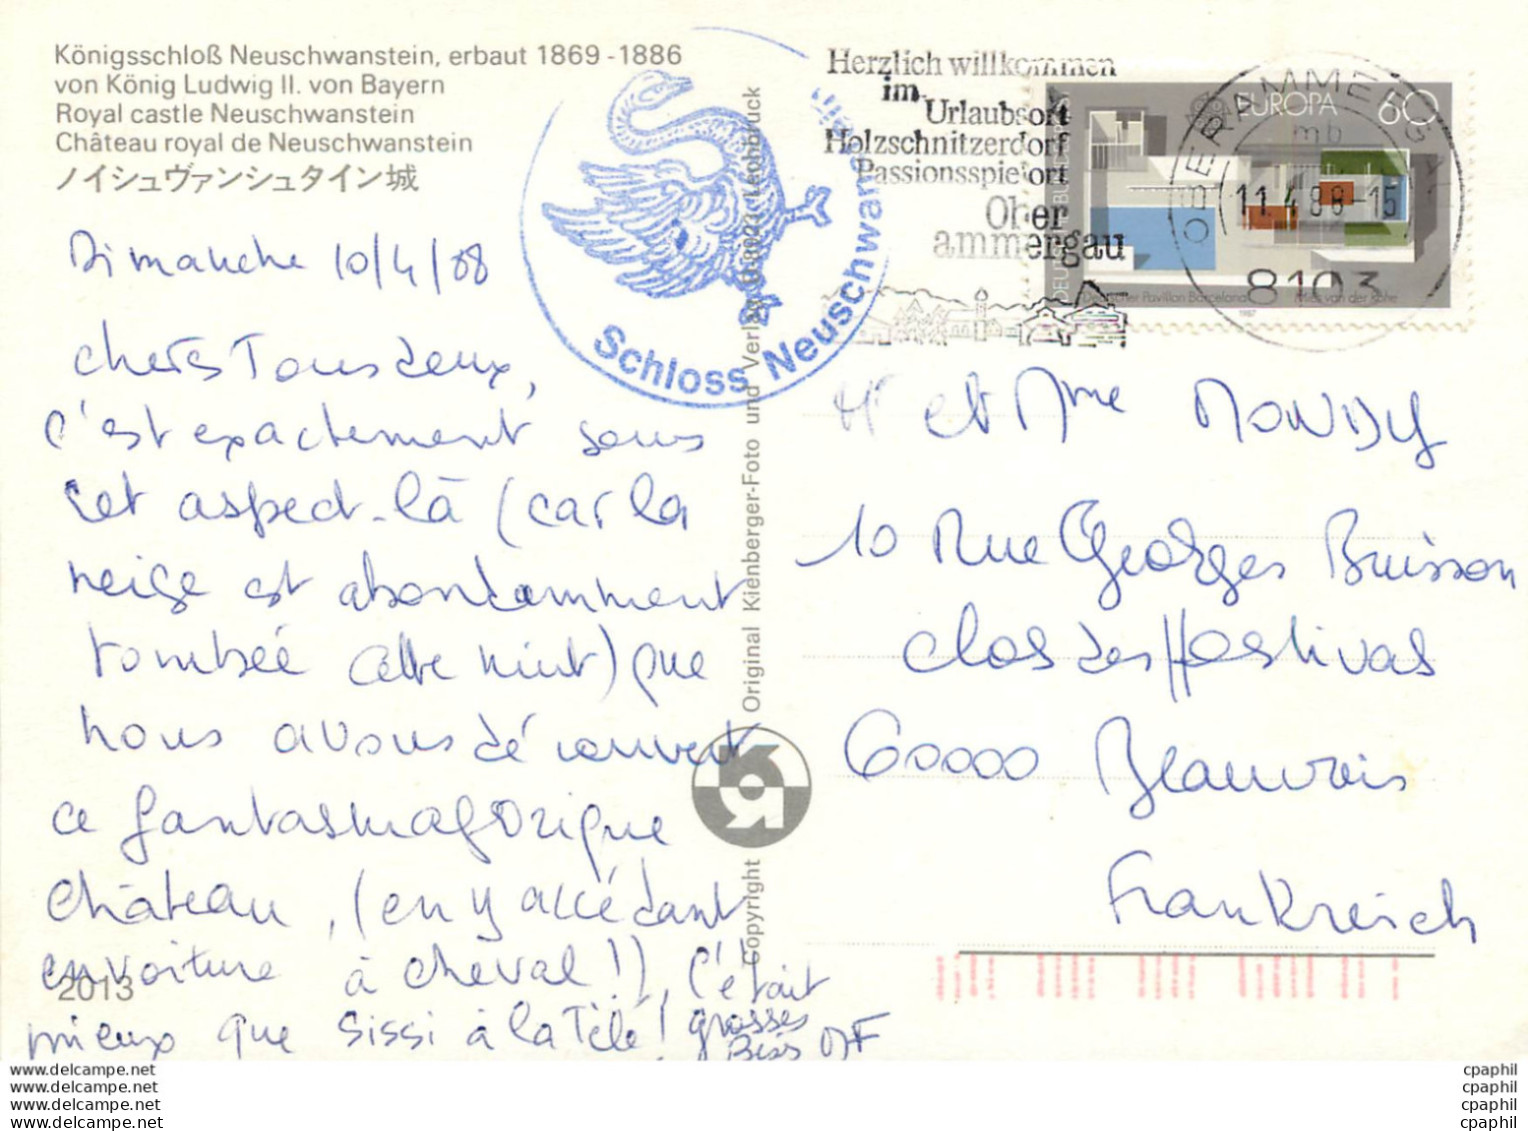 Königsschloß Neuschwanstein, erbaut 1869-1886
von König Ludwig II. von Bayern
Royal castle Neuschwanstein
Château royal de Neuschwanstein
ノイシュヴァンシュタイン城
Dimanche 10/4/88
chers Tous deux,
c'est exactement sous
cet aspect-là (car la
neige est abondamment
tombée cette nuit) que
nous avons découvert
ce fantasmagorique
château, (en y accédant
en voiture à cheval!), c'était
mieux que Sissi à la Télé! grosses
Bises MF
2013
Schloss Neuschwanstein
Original Kienberger-Foto und Verlag Lechbruck
Copyright
Herzlich willkommen
im
Urlaubsort
Holzschnitzerdorf
Passionsspielort
Ober
ammergau
DEUTSCHE BUNDESPOST
EUROPA 60
Deutscher Pavillon Barcelona Mies van der Rohe
1987
OBERAMMERGAU
mb
11.4.88-15
8103
Mr et Mme MONDY
10 Rue Georges Buisson
Clos des Festivals
60000 Beauvais
Frankreich
www.delcampe.net
www.delcampe.net
www.delcampe.net
www.delcampe.net
cpaphil
cpaphil
cpaphil
cpaphil